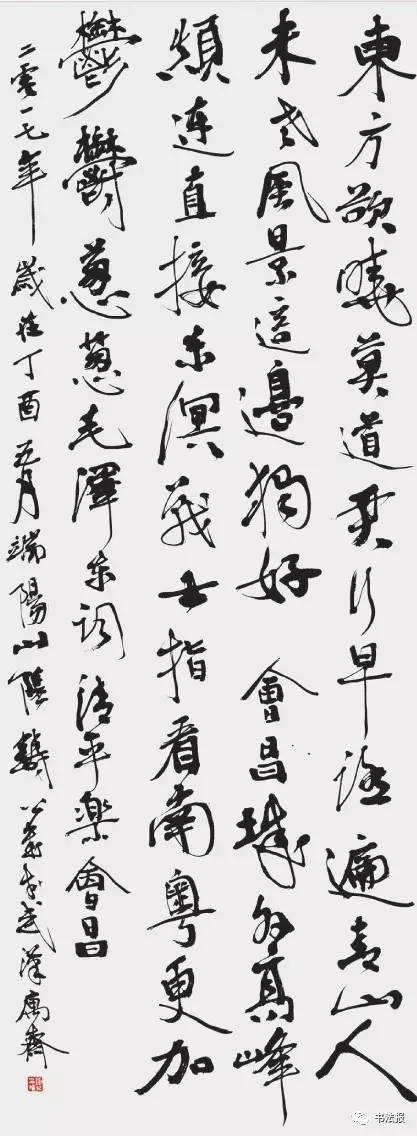 東方欲曉莫道君行早踏遍青山人
未老風景這邊獨好 會昌城外高峰
顛连直接东溟戰士指看南粤更加
鬱鬱葱葱毛澤东詞清平樂會昌
二零一七年歲在丁酉五月端陽山陰 武漢寓齋
书法报